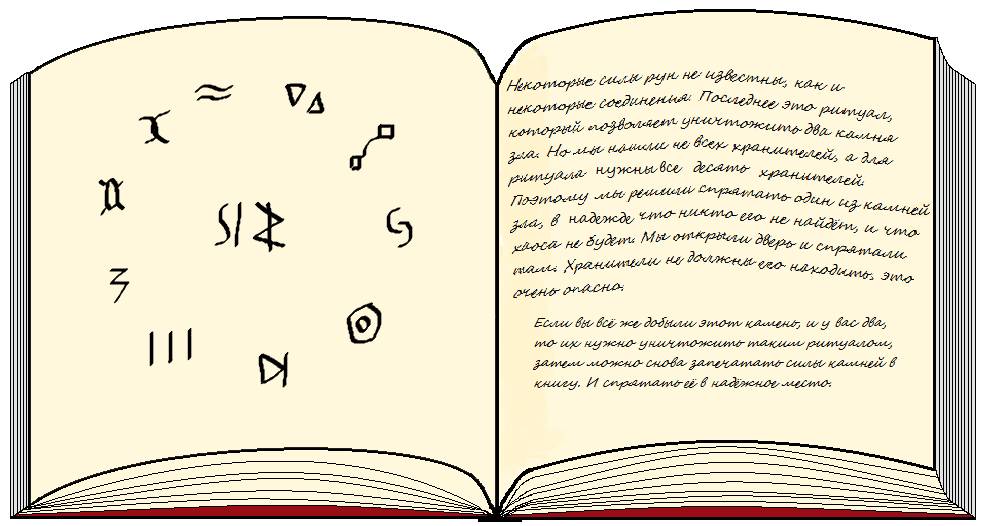 Некоторые силы рун не известны, как и
некоторые соединения. Последнее это ритуал,
который позволяет уничтожить два камня
зла. Но мы нашли не всех хранителей, а для
ритуала нужны все десять хранителей.
Поэтому мы решили спрятать один из камней
зла, в надежде что никто его не найдёт, и что
хаоса не будет. Мы открыли дверь и спрятали
там. Хранители не должны его находить. это
очень опасно.
Если вы всё же добыли этот камень, и у вас два,
то их нужно уничтожить таким ритуалом,
затем можно снова запечатать силы камней в
книгу. И спрятать её в надёжное место.